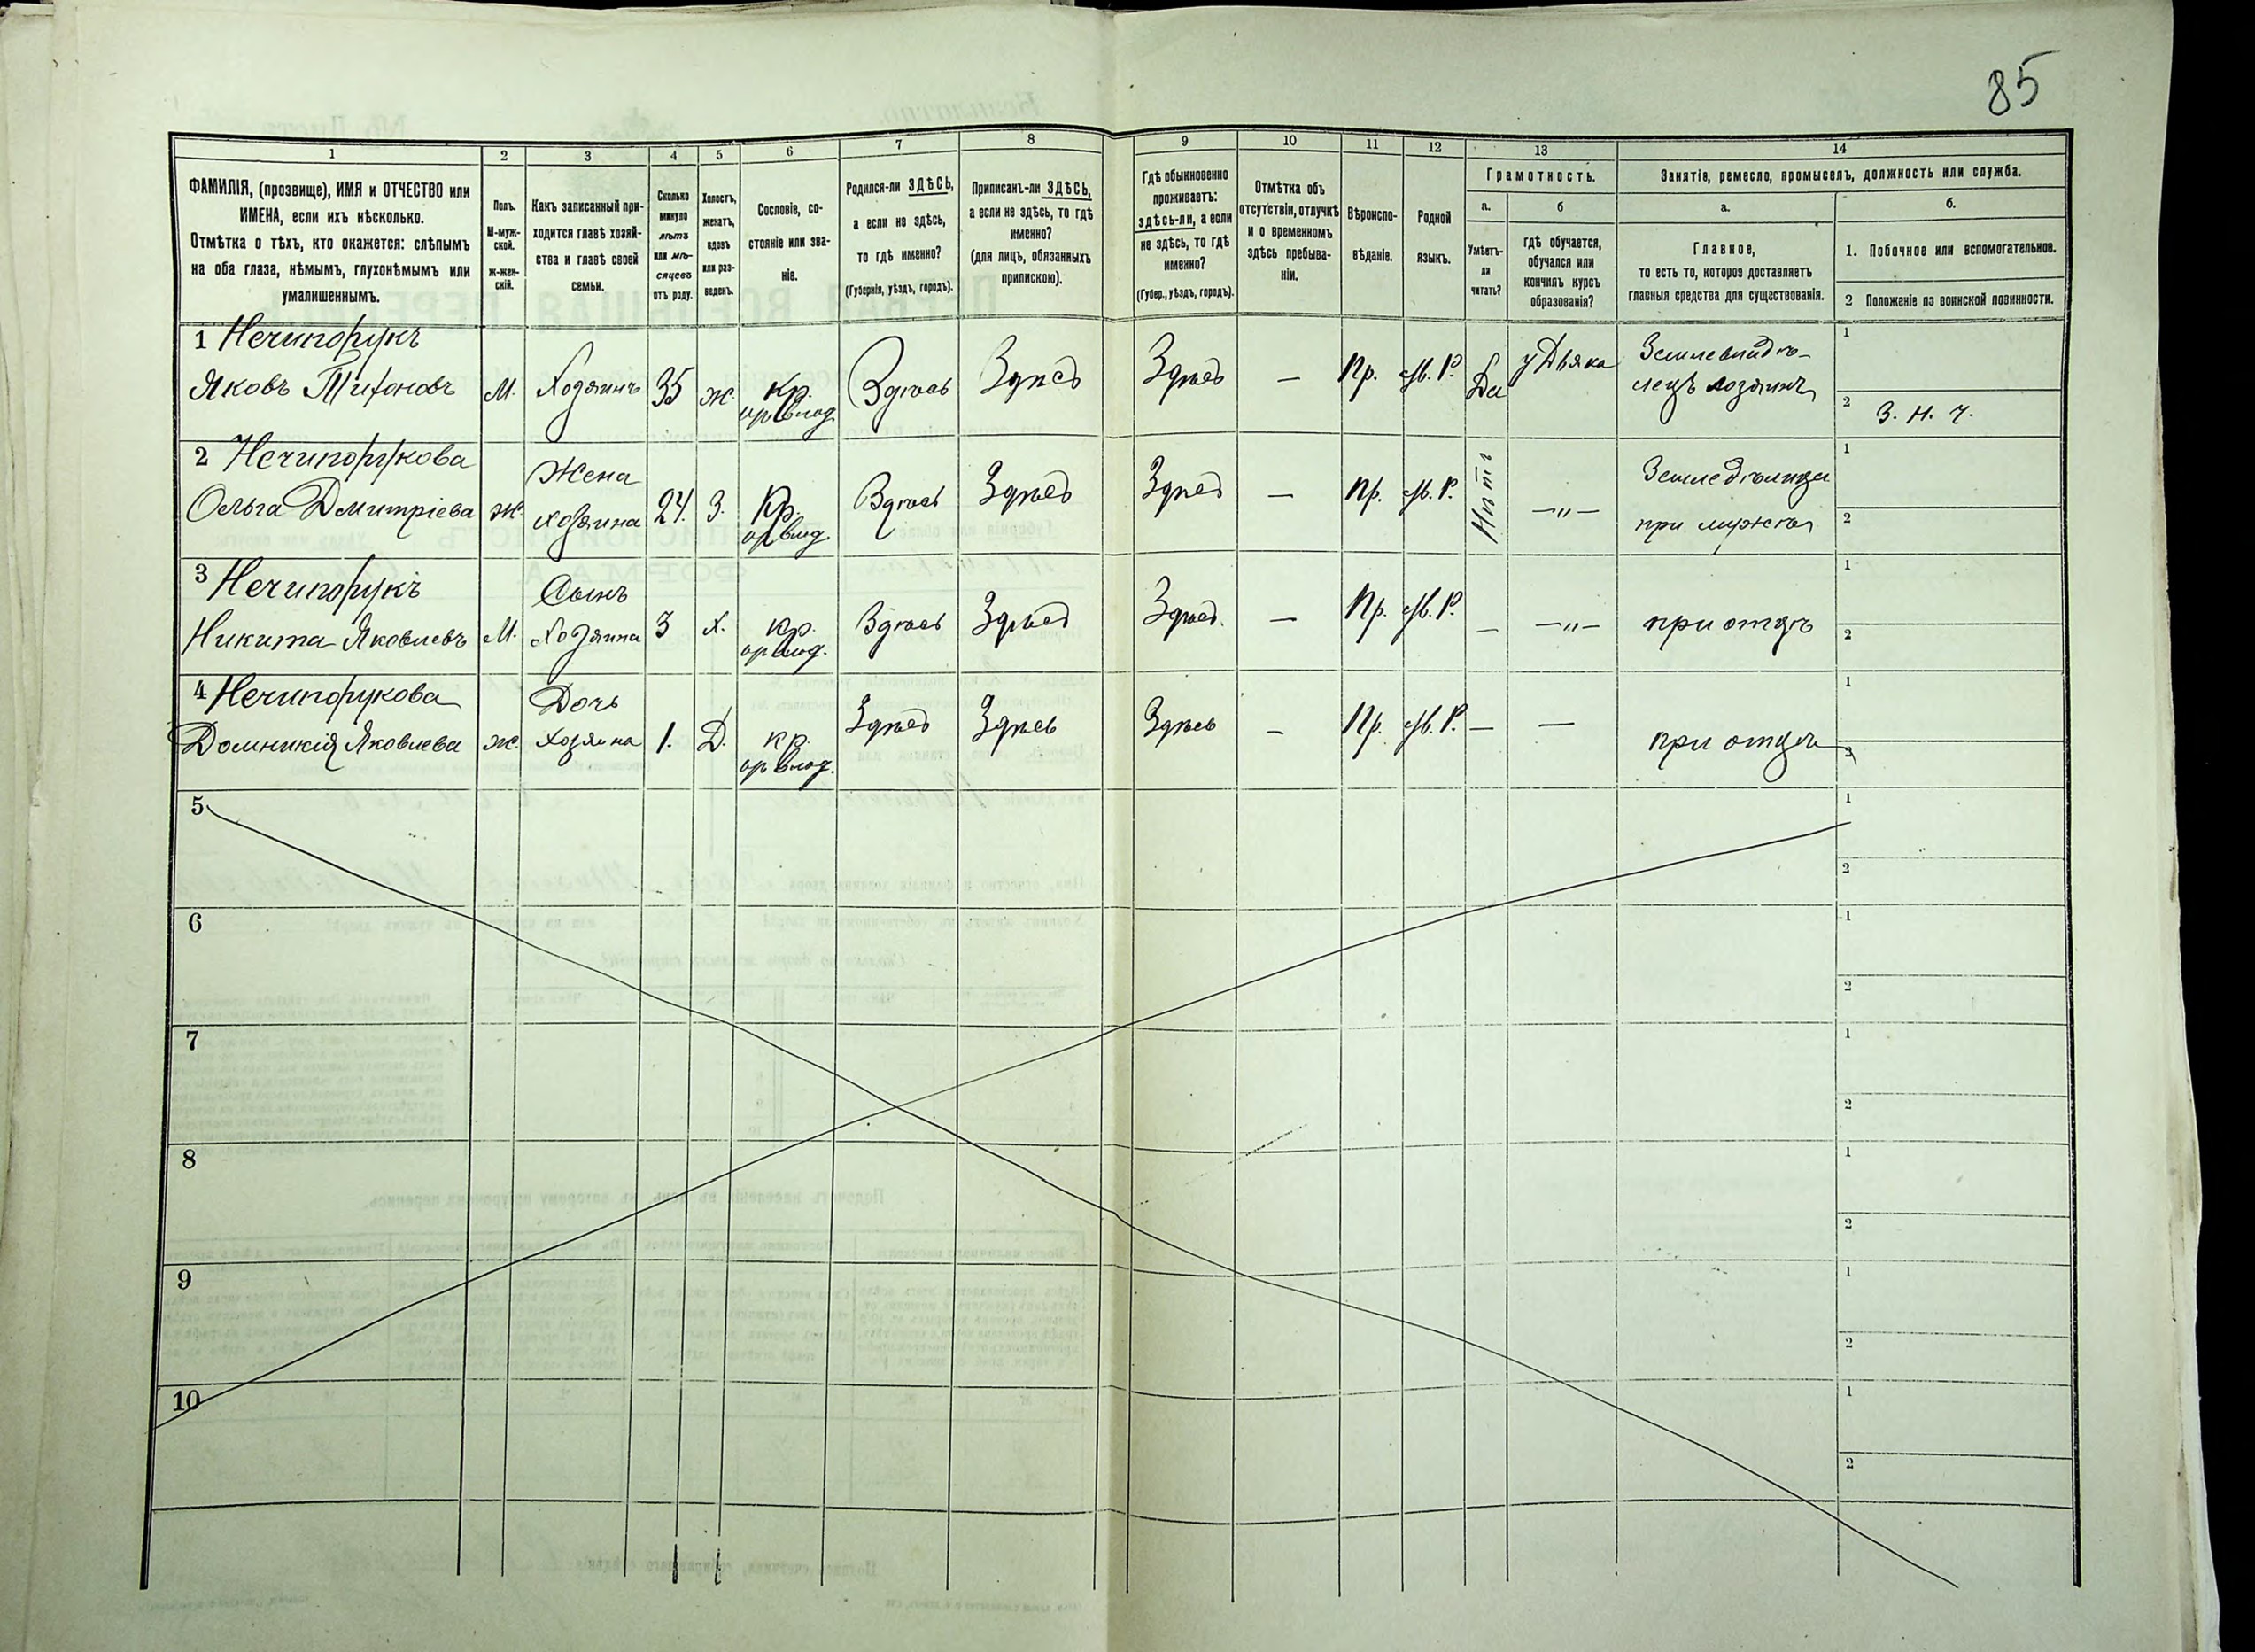 85
1 2 3 4 5 6 7 8 9 10 11 12 13 14
ФАМИЛІЯ, (прозвище), ИМЯ и ОТЧЕСТВО или
ИМЕНА, если ихъ нѣсколько.
Отмѣтка о тѣхъ, кто окажется: слѣпымъ
на оба глаза, нѣмымъ, глухонѣмымъ или
умалишеннымъ.
Полъ.
М-муж-
ской.
Ж-жен-
скій.
Какъ записанный при-
ходится главѣ хозяй-
ства и главѣ своей
семьи.
Сколько
минуло
лѣтъ
или мѣ-
сяцевъ
отъ роду.
Холостъ,
женатъ,
вдовъ
или раз-
веденъ.
Сословіе, со-
стояніе или зва-
ніе.
Родился-ли ЗДѢСЬ,
а если не здѣсь,
то гдѣ именно?
(Губернія, уѣздъ, городъ).
Приписанъ-ли ЗДѢСЬ,
а если не здѣсь, то гдѣ
именно?
(для лицъ, обязанныхъ
припискою).
Гдѣ обыкновенно
проживаетъ:
здѣсь-ли, а если
не здѣсь, то гдѣ
именно?
(Губер., уѣздъ, городъ).
Отмѣтка объ
отсутствіи, отлучкѣ
и о временномъ
здѣсь пребыва-
ніи.
Вѣроиспо-
вѣданіе.
Родной
языкъ.
Грамотность.
а.
Умѣетъ-
ли
читать?
б
гдѣ обучается,
обучался или
кончилъ курсъ
образованія?
Занятіе, ремесло, промыселъ, должность или служба.
а.
Главное,
то есть то, которое доставляетъ
главныя средства для существованія.
б.
1. Побочное или вспомогательное.
2 Положеніе по воинской повинности.
1 Нечипорукъ
Яковъ Тихоновъ М. Хозяинъ 35 ж. Кр. Здѣсь Здѣсь Здѣсь — Пр. М. Р. Да у Дьяка Землевладѣ-
лецъ хозяинъ
1
2 З. Н. Ч.
2 Нечипорукова
Ольга Дмитріева Ж. Жена
хозяина 24. З. Кр. Здѣсь Здѣсь Здѣсь — Пр. М. Р. Нѣтъ —„— Земледѣлица
при мужѣ
1
2
3 Нечипорукъ
Никита Яковлевъ М. Сынъ
хозяина 3 Х. Кр. Здѣсь Здѣсь Здѣсь. — Пр. М. Р. — —„— при отцѣ
1
2
4 Нечипорукова
Домникія Яковлева Ж. Дочь
хозяина 1. Д. Кр. Здѣсь Здѣсь Здѣсь — Пр. М. Р. — — при отцѣ
1
2
5
1
2
6
1
2
7
1
2
8
1
2
9
1
2
10
1
2